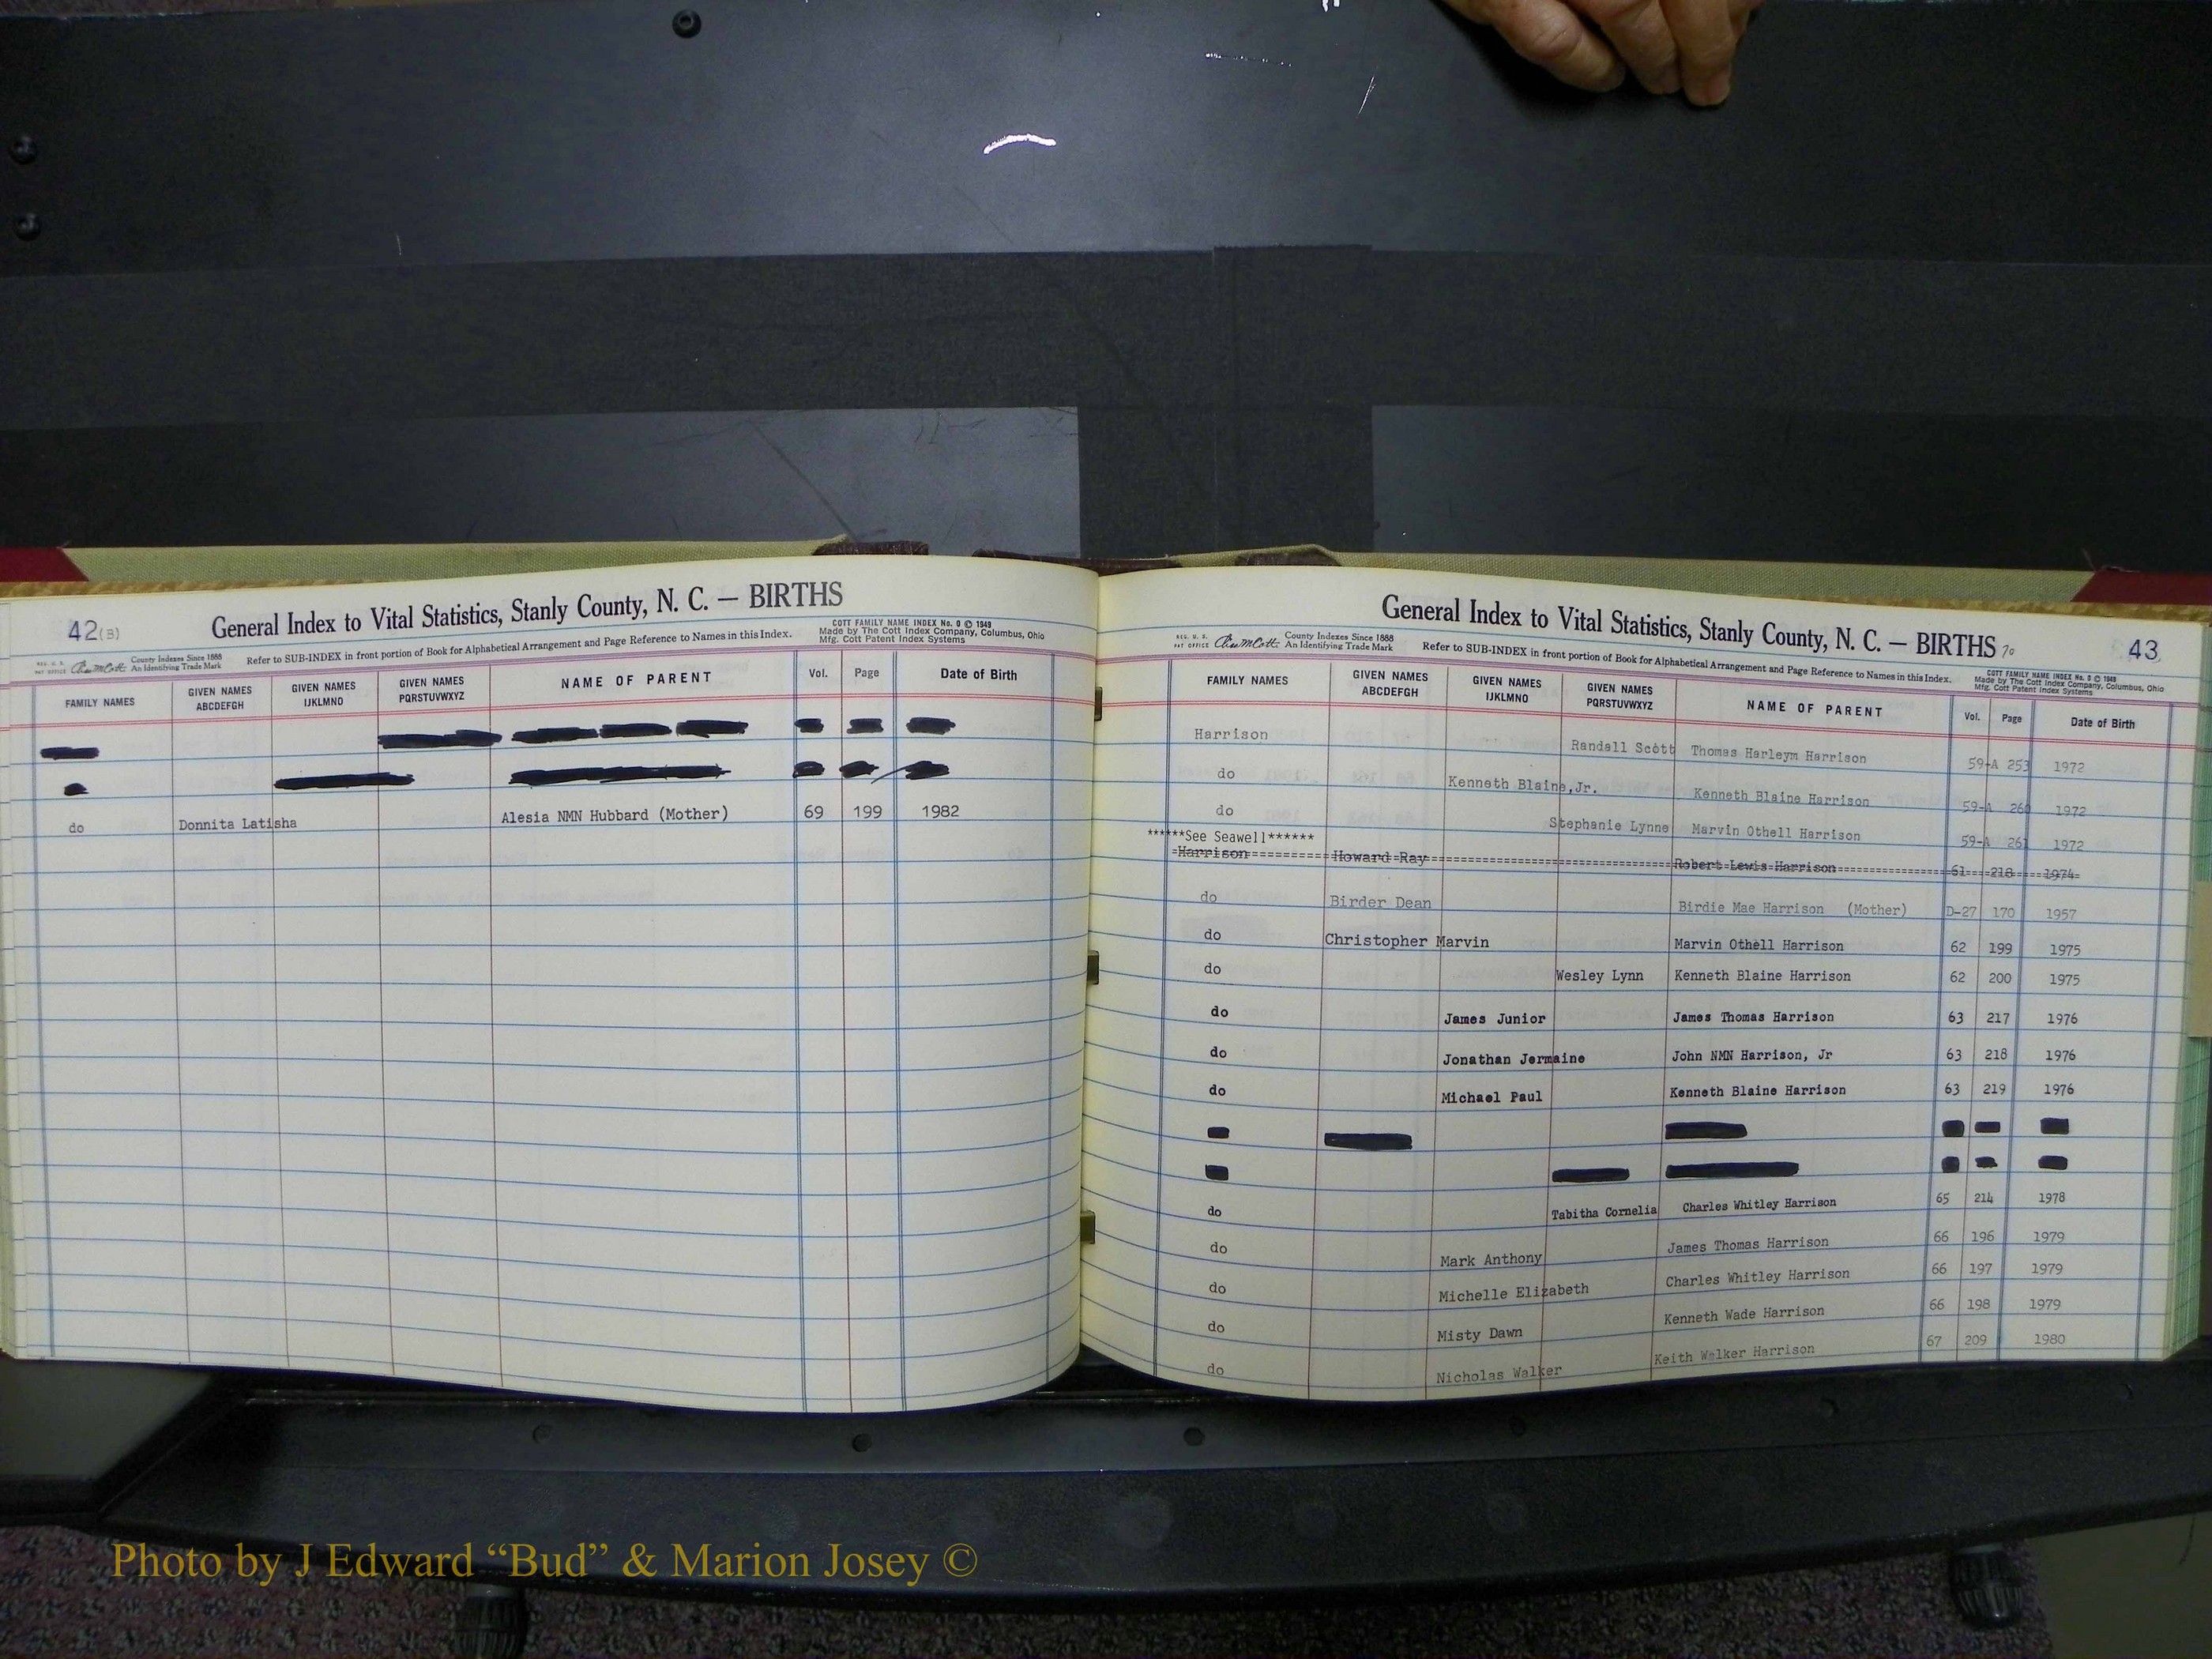 42(B)
General Index to Vital Statistics, Stanly County, N. C. — BIRTHS
COTT FAMILY NAME INDEX No. 0 © 1949
Made by The Cott Index Company, Columbus, Ohio
Mfg. Cott Patent Index Systems
REG. U. S.
PAT OFFICE
County Indexes Since 1888
An Identifying Trade Mark
Refer to SUB-INDEX in front portion of Book for Alphabetical Arrangement and Page Reference to Names in this Index.
FAMILY NAMES GIVEN NAMES ABCDEFGH GIVEN NAMES IJKLMNO GIVEN NAMES PQRSTUVWXYZ NAME OF PARENT Vol. Page Date of Birth
do Donnita Latisha Alesia NMN Hubbard (Mother) 69 199 1982
General Index to Vital Statistics, Stanly County, N. C. — BIRTHS
43
REG. U. S.
PAT OFFICE
County Indexes Since 1888
An Identifying Trade Mark
Refer to SUB-INDEX in front portion of Book for Alphabetical Arrangement and Page Reference to Names in this Index.
COTT FAMILY NAME INDEX No. 0 © 1949
Made by The Cott Index Company, Columbus, Ohio
Mfg. Cott Patent Index Systems
FAMILY NAMES GIVEN NAMES ABCDEFGH GIVEN NAMES IJKLMNO GIVEN NAMES PQRSTUVWXYZ NAME OF PARENT Vol. Page Date of Birth
Harrison Randall Scott Thomas Harleym Harrison 59-A 253 1972
do Kenneth Blaine,Jr. Kenneth Blaine Harrison 59-A 260 1972
do Stephanie Lynne Marvin Othell Harrison 59-A 261 1972
******See Seawell******
Harrison Howard Ray Robert Lewis Harrison 61 218 1974
do Birder Dean Birdie Mae Harrison (Mother) D-27 170 1957
do Christopher Marvin Marvin Othell Harrison 62 199 1975
do Wesley Lynn Kenneth Blaine Harrison 62 200 1975
do James Junior James Thomas Harrison 63 217 1976
do Jonathan Jermaine John NMN Harrison, Jr 63 218 1976
do Michael Paul Kenneth Blaine Harrison 63 219 1976
do Tabitha Cornelia Charles Whitley Harrison 65 214 1978
do Mark Anthony James Thomas Harrison 66 196 1979
do Michelle Elizabeth Charles Whitley Harrison 66 197 1979
do Misty Dawn Kenneth Wade Harrison 66 198 1979
do Nicholas Walker Keith Walker Harrison 67 209 1980
Photo by J Edward “Bud” & Marion Josey ©